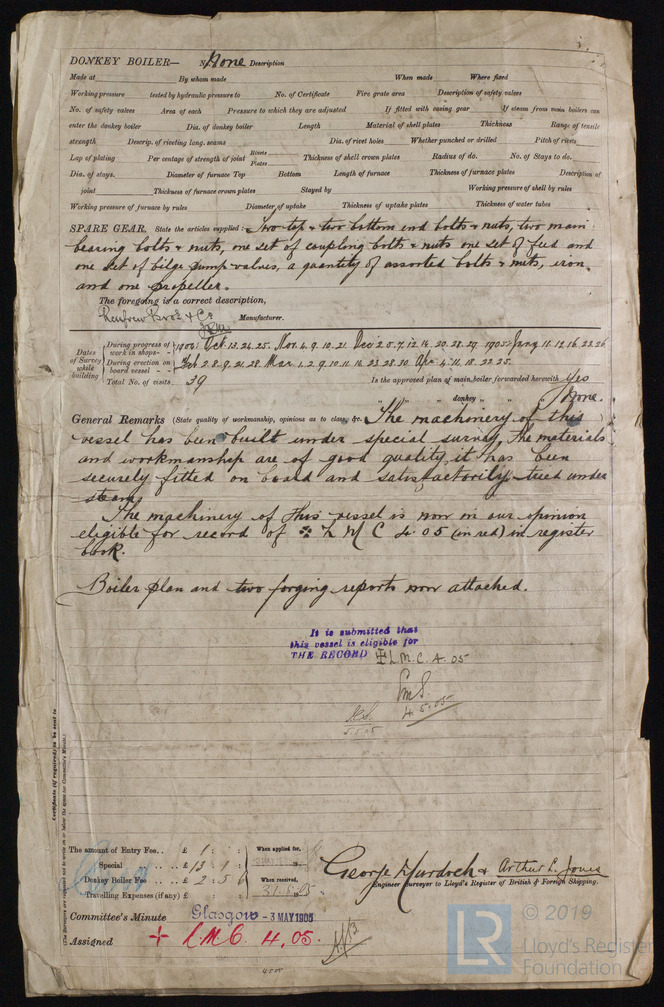 DONKEY BOILER— No. None Description
Made at By whom made When made Where fixed
Working pressure tested by hydraulic pressure to No. of Certificate Fire grate area Description of safety valves
No. of safety valves Area of each Pressure to which they are adjusted If fitted with easing gear If steam from main boilers can
enter the donkey boiler Dia. of donkey boiler Length Material of shell plates Thickness Range of tensile
strength Descrip. of riveting long. seams Dia. of rivet holes Whether punched or drilled Pitch of rivets
Lap of plating Per centage of strength of joint Rivets Plates Thickness of shell crown plates Radius of do. No. of Stays to do.
Dia. of stays. Diameter of furnace Top Bottom Length of furnace Thickness of furnace plates Description of
joint Thickness of furnace crown plates Stayed by Working pressure of shell by rules
Working pressure of furnace by rules Diameter of uptake Thickness of uptake plates Thickness of water tubes
SPARE GEAR. State the articles supplied:— Two top & two bottom end bolts & nuts, two main
bearing bolts & nuts, one set of coupling bolts & nuts one set of feed and
one set of bilge pump valves, a quantity of assorted bolts & nuts, iron,
and one propeller.
The foregoing is a correct description,
Renfrew Bros & Co Manufacturer.
Dates of Survey while building
During progress of work in shops - - 1904: Oct. 13. 24. 25. Nov. 4. 9. 10. 21. Dec 2. 5. 7. 12. 14. 20. 28. 29. 1905 Jany 11. 12. 16. 23. 26.
During erection on board vessel - - Feb 2. 8. 9. 21. 28. Mar. 1. 2. 9. 10. 11. 16. 23. 28. 30. Apr. 4. 11. 18. 22. 25.
Total No. of visits 39 Is the approved plan of main boiler forwarded herewith Yes
" " " donkey " " " None.
General Remarks (State quality of workmanship, opinions as to class, &c. The machinery of this
vessel has been built under special survey, the materials
and workmanship are of good quality, it has been
securely fitted on board and satisfactorily tried under
steam,
The machinery of this vessel is now in our opinion
eligible for record of ✠ L M C 4. 05 (in red) in register
book.
Boiler plan and two forging reports now attached.
It is submitted that
this vessel is eligible for
THE RECORD ✠ L.M.C. 4. 05
4.5.05
5.5.05
Certificate (if required) to be sent to
The amount of Entry Fee. . £ 1 : : When applied for,
Special .. .. .. £ 13 : 1 :
Donkey Boiler Fee .. .. £ 2 : 5 : 6 When received,
Travelling Expenses (if any) £ : : 31.5.05
George Murdoch & Arthur L. Jones
Engineer Surveyor to Lloyd's Register of British & Foreign Shipping.
Committee's Minute Glasgow - 3 MAY 1905
Assigned + L.M.C. 4. 05.
4.5.05
LR
© 2019
Lloyd's Register
Foundation